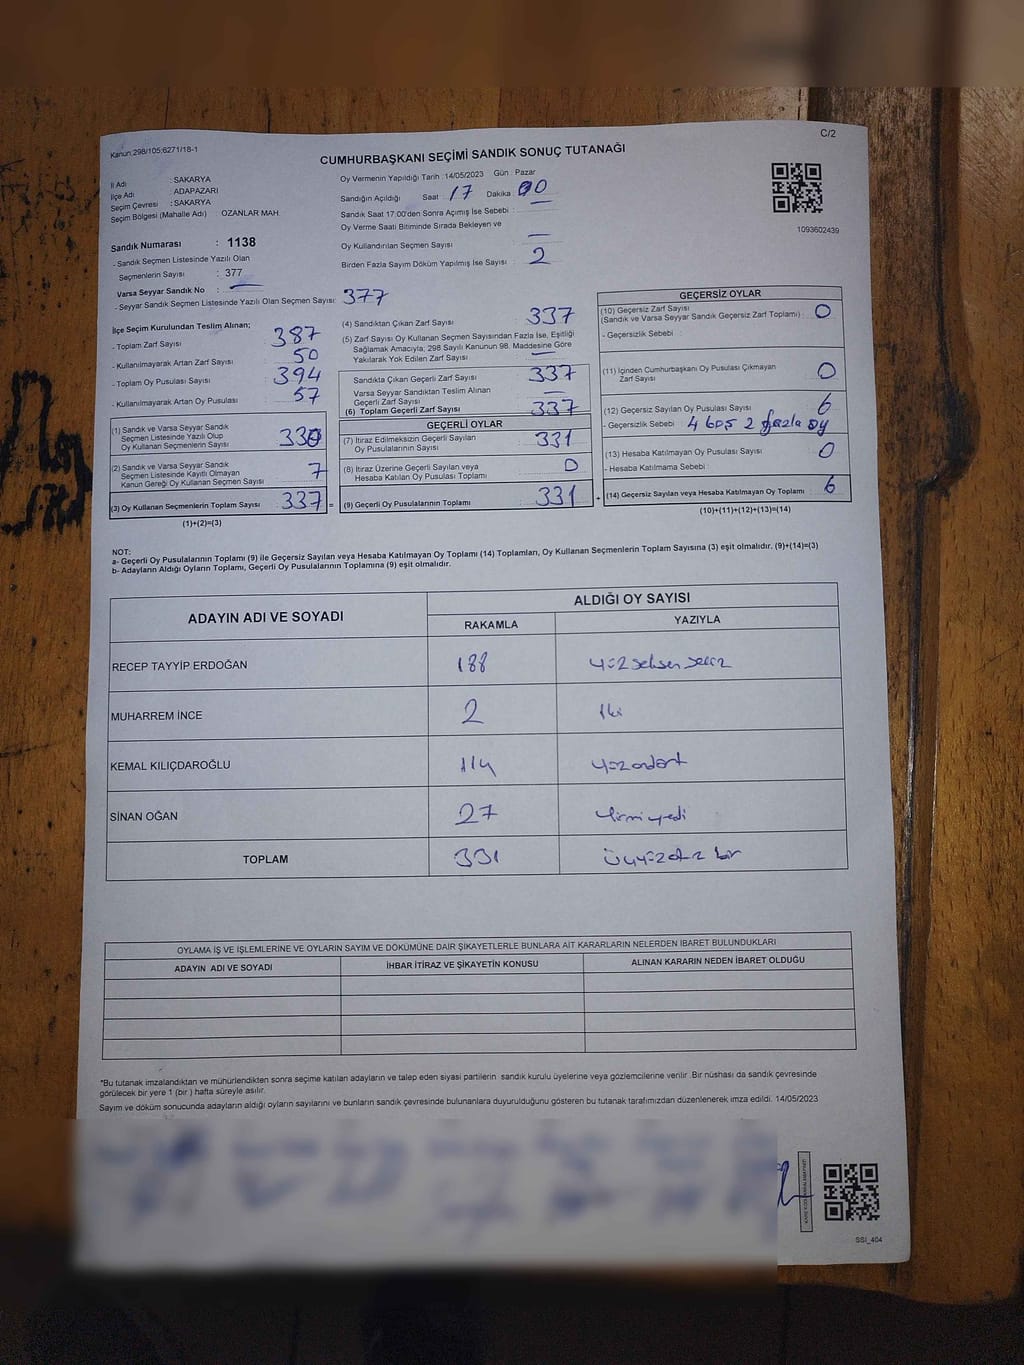 C/2
Kanun:298/105;6271/18-1
CUMHURBAŞKANI SEÇİMİ SANDIK SONUÇ TUTANAĞI
İl Adı : SAKARYA
İlçe Adı : ADAPAZARI
Seçim Çevresi : SAKARYA
Seçim Bölgesi (Mahalle Adı) : OZANLAR MAH.
Sandık Numarası : 1138
- Sandık Seçmen Listesinde Yazılı Olan
Seçmenlerin Sayısı : 377
Varsa Seyyar Sandık No : —
- Seyyar Sandık Seçmen Listesinde Yazılı Olan Seçmen Sayısı: 377
Oy Vermenin Yapıldığı Tarih :14/05/2023 Gün : Pazar
Sandığın Açıldığı Saat : 17 Dakika : 00
Sandık Saat 17:00'den Sonra Açımış İse Sebebi : —
Oy Verme Saati Bitiminde Sırada Bekleyen ve
Oy Kullandırılan Seçmen Sayısı : —
Birden Fazla Sayım Döküm Yapılmış İse Sayısı : 2
1093602439
İlçe Seçim Kurulundan Teslim Alınan;
- Toplam Zarf Sayısı : 387
- Kullanılmayarak Artan Zarf Sayısı : 50
- Toplam Oy Pusulası Sayısı : 394
- Kullanılmayarak Artan Oy Pusulası : 57
(1) Sandık ve Varsa Seyyar Sandık
Seçmen Listesinde Yazılı Olup
Oy Kullanan Seçmenlerin Sayısı : 330
(2) Sandık ve Varsa Seyyar Sandık
Seçmen Listesinde Kayıtlı Olmayan
Kanun Gereği Oy Kullanan Seçmen Sayısı : 7
(3) Oy Kullanan Seçmenlerin Toplam Sayısı : 337 =
(1)+(2)=(3)
(4) Sandıktan Çıkan Zarf Sayısı : 337
(5) Zarf Sayısı Oy Kullanan Seçmen Sayısından Fazla İse, Eşitliği
Sağlamak Amacıyla; 298 Sayılı Kanunun 98. Maddesine Göre
Yakılarak Yok Edilen Zarf Sayısı : —
Sandıkta Çıkan Geçerli Zarf Sayısı : 337
Varsa Seyyar Sandıktan Teslim Alınan
Geçerli Zarf Sayısı : —
(6) Toplam Geçerli Zarf Sayısı : 337
GEÇERLİ OYLAR
(7) İtiraz Edilmeksizin Geçerli Sayılan
Oy Pusulalarının Sayısı : 331
(8) İtiraz Üzerine Geçerli Sayılan veya
Hesaba Katılan Oy Pusulası Toplamı : 0
(9) Geçerli Oy Pusulalarının Toplamı : 331 +
GEÇERSİZ OYLAR
(10) Geçersiz Zarf Sayısı
(Sandık ve Varsa Seyyar Sandık Geçersiz Zarf Toplamı) : 0
- Geçersizlik Sebebi :
(11) İçinden Cumhurbaşkanı Oy Pusulası Çıkmayan
Zarf Sayısı : 0
(12) Geçersiz Sayılan Oy Pusulası Sayısı : 6
- Geçersizlik Sebebi : 4 boş 2 fazla oy
(13) Hesaba Katılmayan Oy Pusulası Sayısı : 0
- Hesaba Katılmama Sebebi :
(14) Geçersiz Sayılan veya Hesaba Katılmayan Oy Toplamı : 6
(10)+(11)+(12)+(13)=(14)
NOT:
a- Geçerli Oy Pusulalarının Toplamı (9) ile Geçersiz Sayılan veya Hesaba Katılmayan Oy Toplamı (14) Toplamları, Oy Kullanan Seçmenlerin Toplam Sayısına (3) eşit olmalıdır. (9)+(14)=(3)
b- Adayların Aldığı Oyların Toplamı, Geçerli Oy Pusulalarının Toplamına (9) eşit olmalıdır.
ADAYIN ADI VE SOYADI ALDIĞI OY SAYISI
RAKAMLA YAZIYLA
RECEP TAYYİP ERDOĞAN 188 yüz seksen sekiz
MUHARREM İNCE 2 iki
KEMAL KILIÇDAROĞLU 114 yüz ondört
SİNAN OĞAN 27 yirmi yedi
TOPLAM 331 üçyüzotuz bir
OYLAMA İŞ VE İŞLEMLERİNE VE OYLARIN SAYIM VE DÖKÜMÜNE DAİR ŞİKAYETLERLE BUNLARA AİT KARARLARIN NELERDEN İBARET BULUNDUKLARI
ADAYIN ADI VE SOYADI İHBAR İTİRAZ VE ŞİKAYETİN KONUSU ALINAN KARARIN NEDEN İBARET OLDUĞU
*Bu tutanak imzalandıktan ve mühürlendikten sonra seçime katılan adayların ve talep eden siyasi partilerin sandık kurulu üyelerine veya gözlemcilerine verilir. Bir nüshası da sandık çevresinde
görülecek bir yere 1 (bir ) hafta süreyle asılır.
Sayım ve döküm sonucunda adayların aldığı oyların sayılarını ve bunların sandık çevresinde bulunanlara duyurulduğunu gösteren bu tutanak tarafımızdan düzenlenerek imza edildi. 14/05/2023
SSI_404